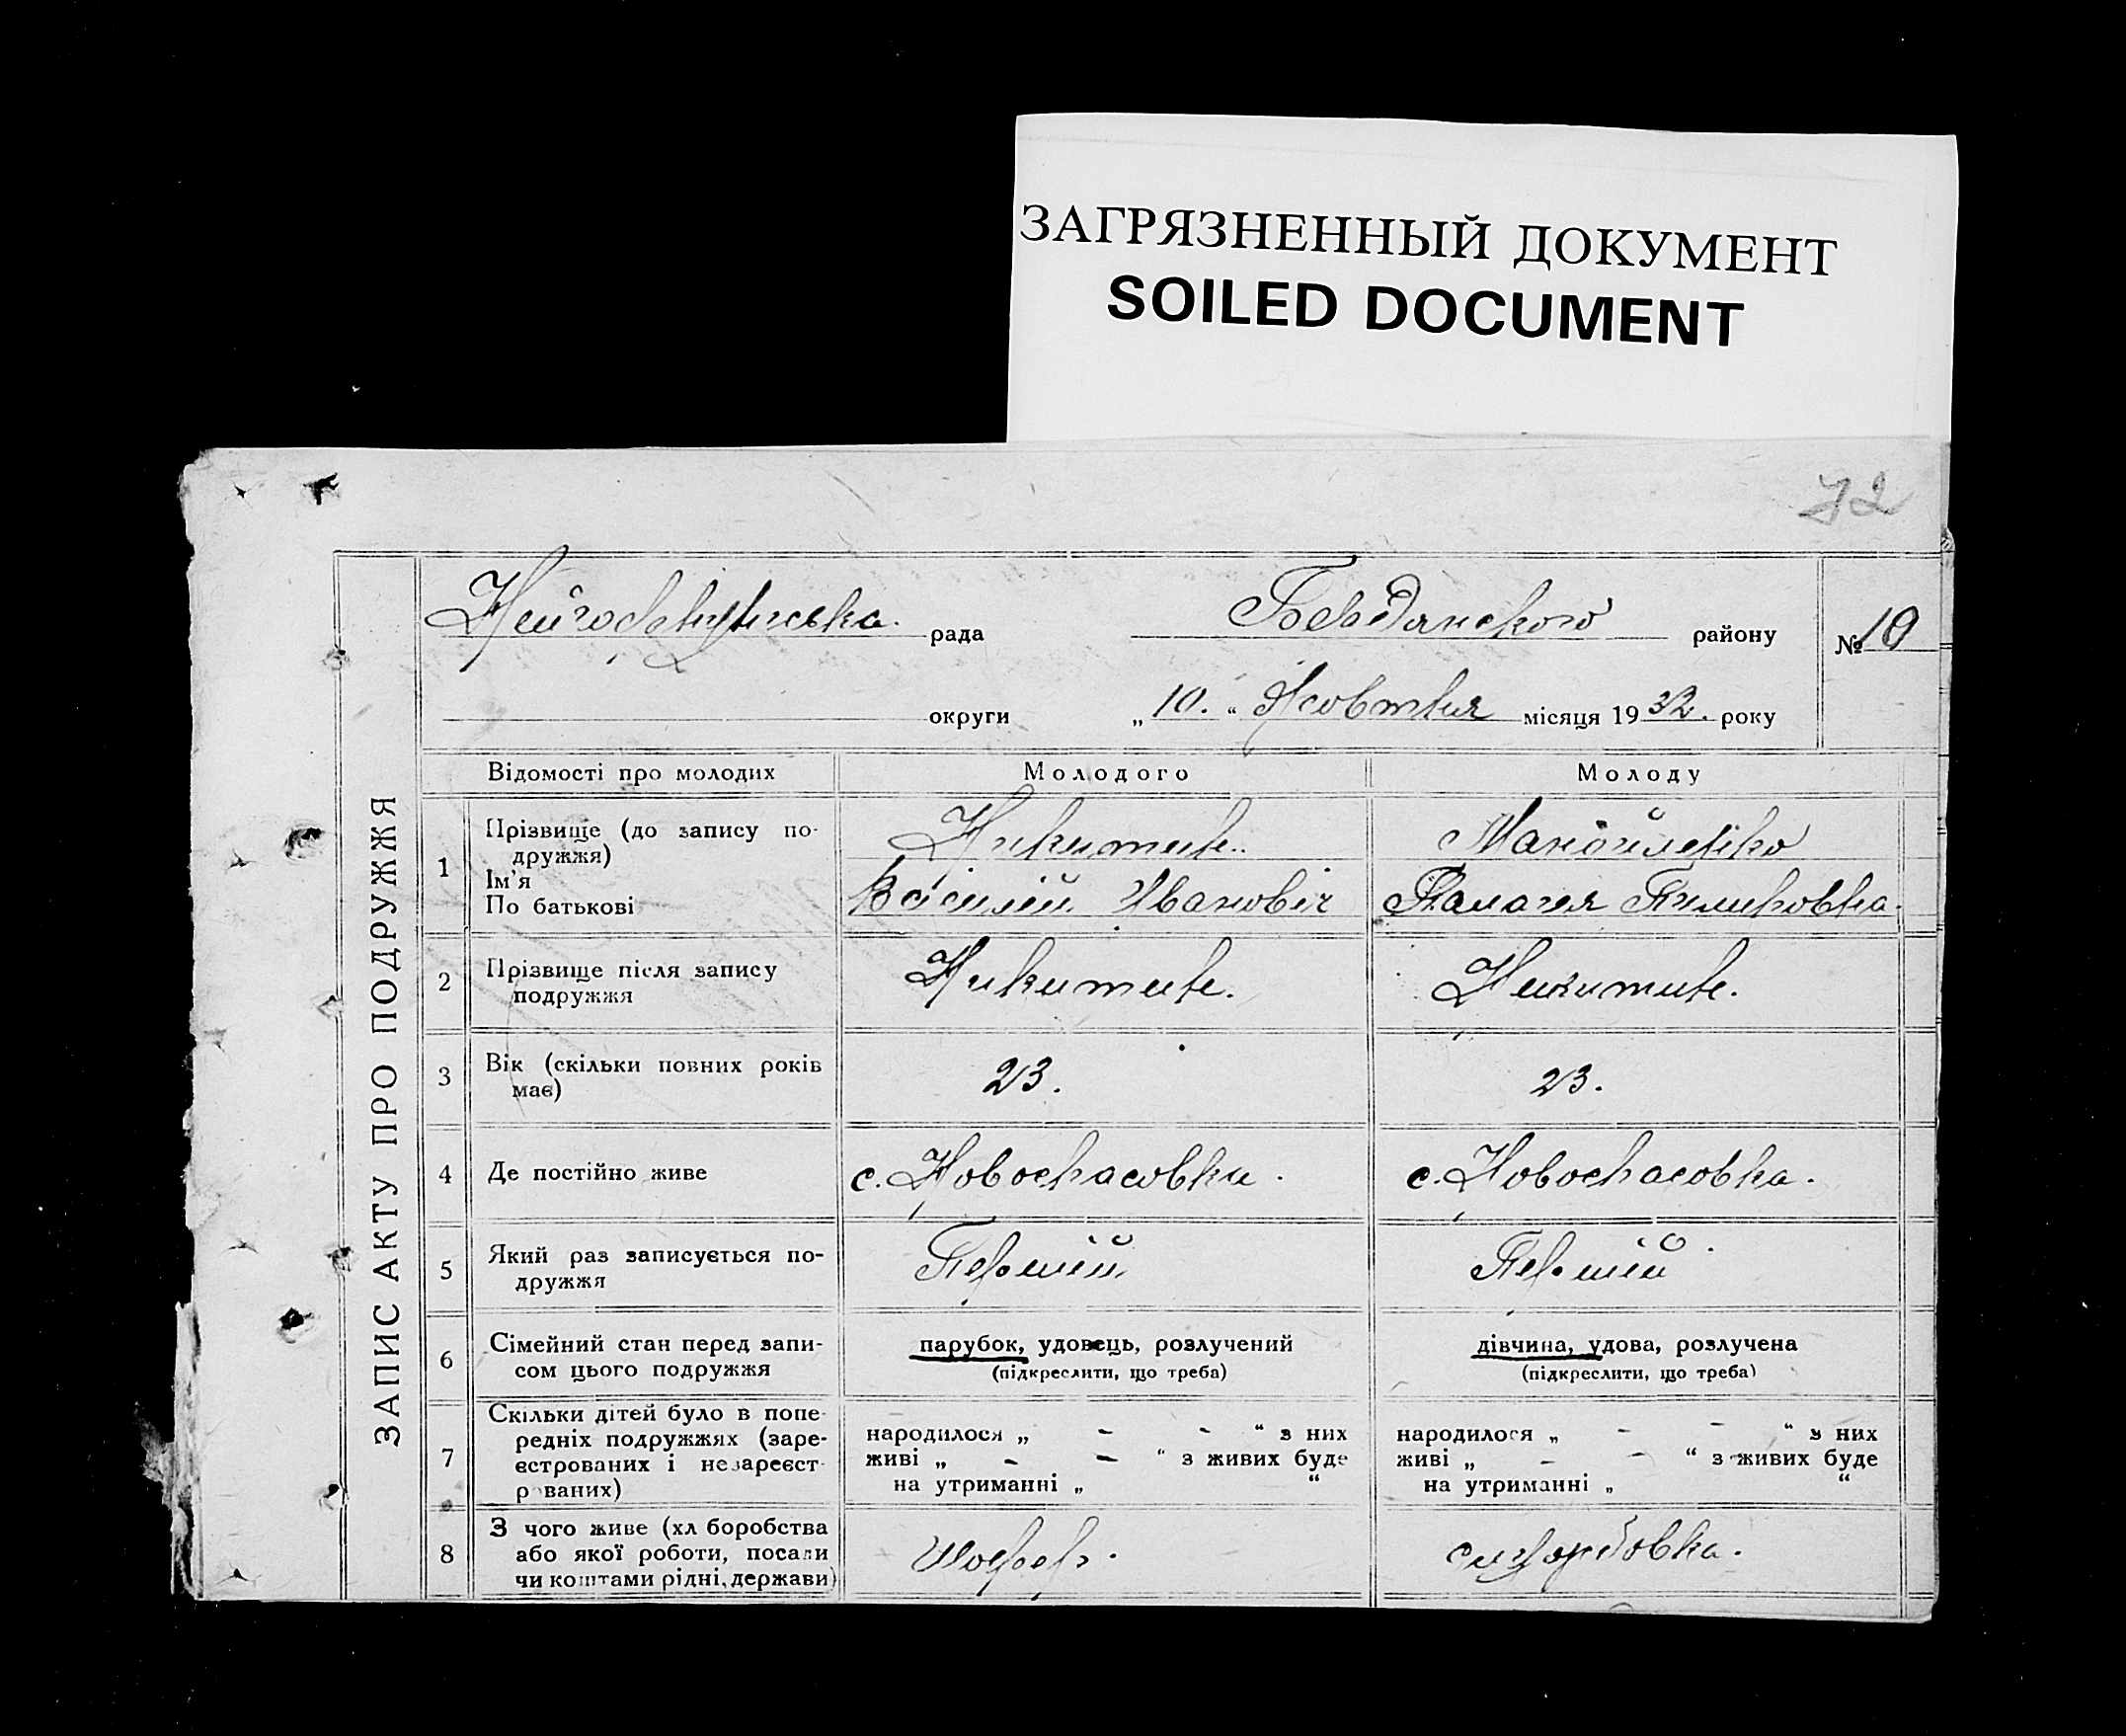 ЗАГРЯЗНЕННЫЙ ДОКУМЕНТ
SOILED DOCUMENT
72
ЗАПИС АКТУ ПРО ПОДРУЖЖЯ
рада
району
№ 10
округи „10.“ Жовтня місяця 1932. року
Відомості про молодих Молодого Молоду
1 Прізвище (до запису по-
дружжя)
Ім'я
По батькові
Никитин.. Манойленко
Василій Івановіч Палагея
2 Прізвище після запису
подружжя
Никитин. Никитин.
3 Вік (скільки повних років
має)
23. 23.
4 Де постійно живе с. Новоспасовки. с. Новоспасовка.
5 Який раз записується по-
дружжя
Першій Першій
6 Сімейний стан перед запи-
сом цього подружжя
парубок, удовець, розлучений
(підкреслити, що треба)
дівчина, удова, розлучена
(підкреслити, що треба)
7 Скільки дітей було в попе-
редніх подружжях (заре-
єстрованих і незареєст-
рованих)
народилося „ - - “ з них
живі „ - - “ з живих буде
на утриманні „ “
народилося „ - - “ з них
живі „ - - “ з живих буде
на утриманні „ “
8 З чого живе (хл боробства
або якої роботи, посади
чи коштами рідні, держави)
Шофер.